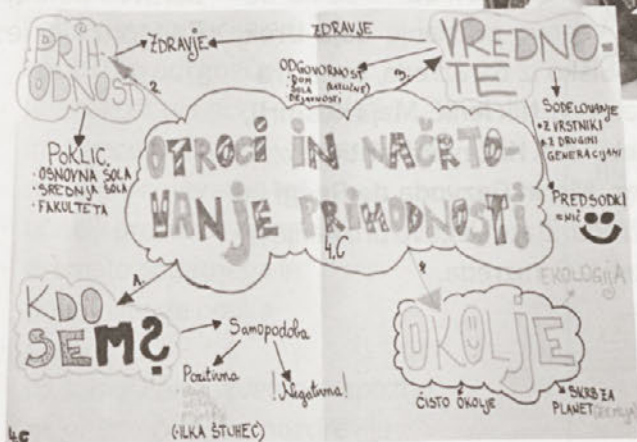 PRIH-
ODNOST
2.
ZDRAVJE
ZDRAVJE
VREDNO-
TE
ODGOVORNOST
• DOM
• ŠOLA
DEJAVNOSTI
3.
SODELOVANJE
• Z VRSTNIKI
• Z DRUGIMI
GENERACIJAMI
PREDSODKI
= NIČ
POKLIC
• OSNOVNA ŠOLA
• SREDNJA ŠOLA
• FAKULTETA
OTROCI IN NAČRTO-
VANJE PRIHODNOSTI
4.C
1.
KDO
SEM?
Samopodoba
Pozitivna
! Negativna!
(-ILKA ŠTUHEC)
4.
EKOLOGIJA
OKOLJE
ČISTO OKOLJE
SKRB ZA
PLANET
4.C